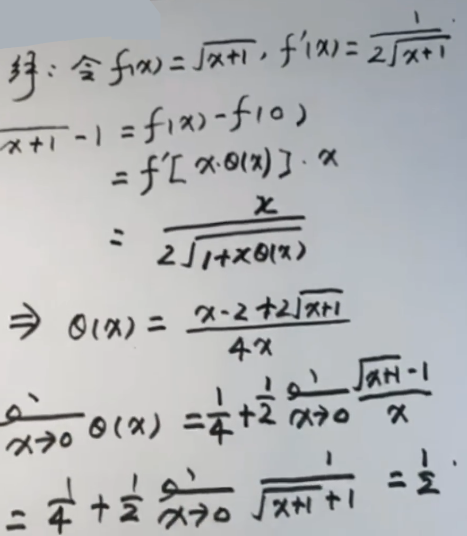 解: 令 f(x) = √(x+1), f'(x) = 1/(2√(x+1)).
√(x+1) - 1 = f(x) - f(0)
= f'[x·θ(x)]·x
= x/(2√(1+xθ(x)))
⇒ θ(x) = (x-2+2√(x+1))/(4x)
x→0 θ(x) = 1/4 + 1/2 x→0 (√(x+1) - 1)/x
= 1/4 + 1/2 x→0 1/(√(x+1) + 1) = 1/2.